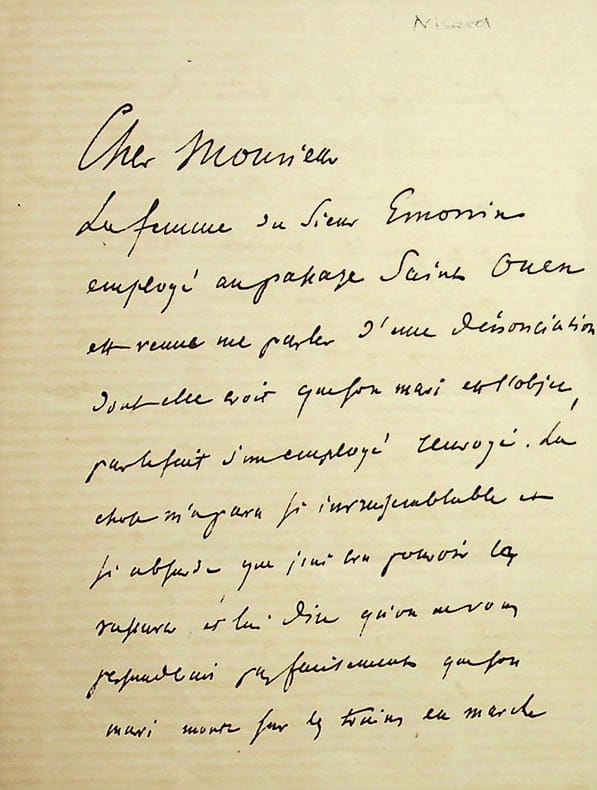 Nisard
Cher Monsieur
La femme du Sieur Emonin
employé au passage Saint Ouen
est venue me parler d'une dénonciation
dont elle croit que son mari est l'objet,
par le fait d'un employé renvoyé. La
chose m'a paru si invraisemblable et
si absurde que j'ai cru pouvoir la
rassurer et lui dire qu'on ne vous
persuaderait pas facilement que son
mari monte sur les trains en marche